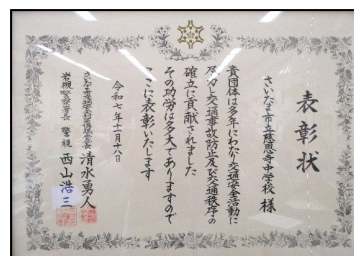 表彰状
さいたま市立慈恩寺中学校 様
貴団体は多年にわたり交通安全活動に
尽力し交通事故防止及び交通秩序の
確立に貢献されました
その功労は多大でありますので
ここに表彰いたします
令和七年十一月十八日
清水勇人
岩槻警察署長 警視 西山浩三